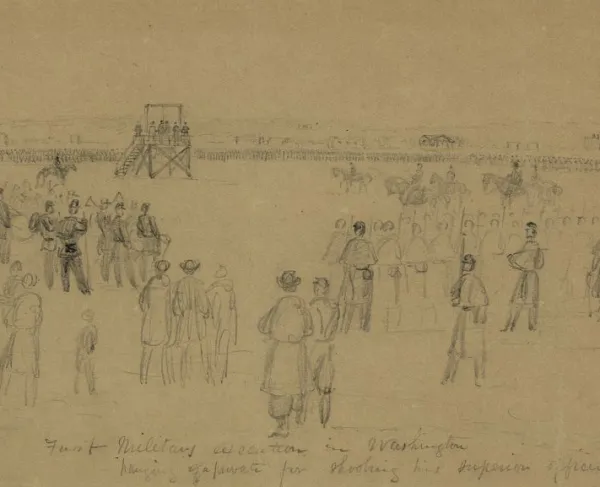 First Military execution in Washington
hanging of a private for shooting his superior officer